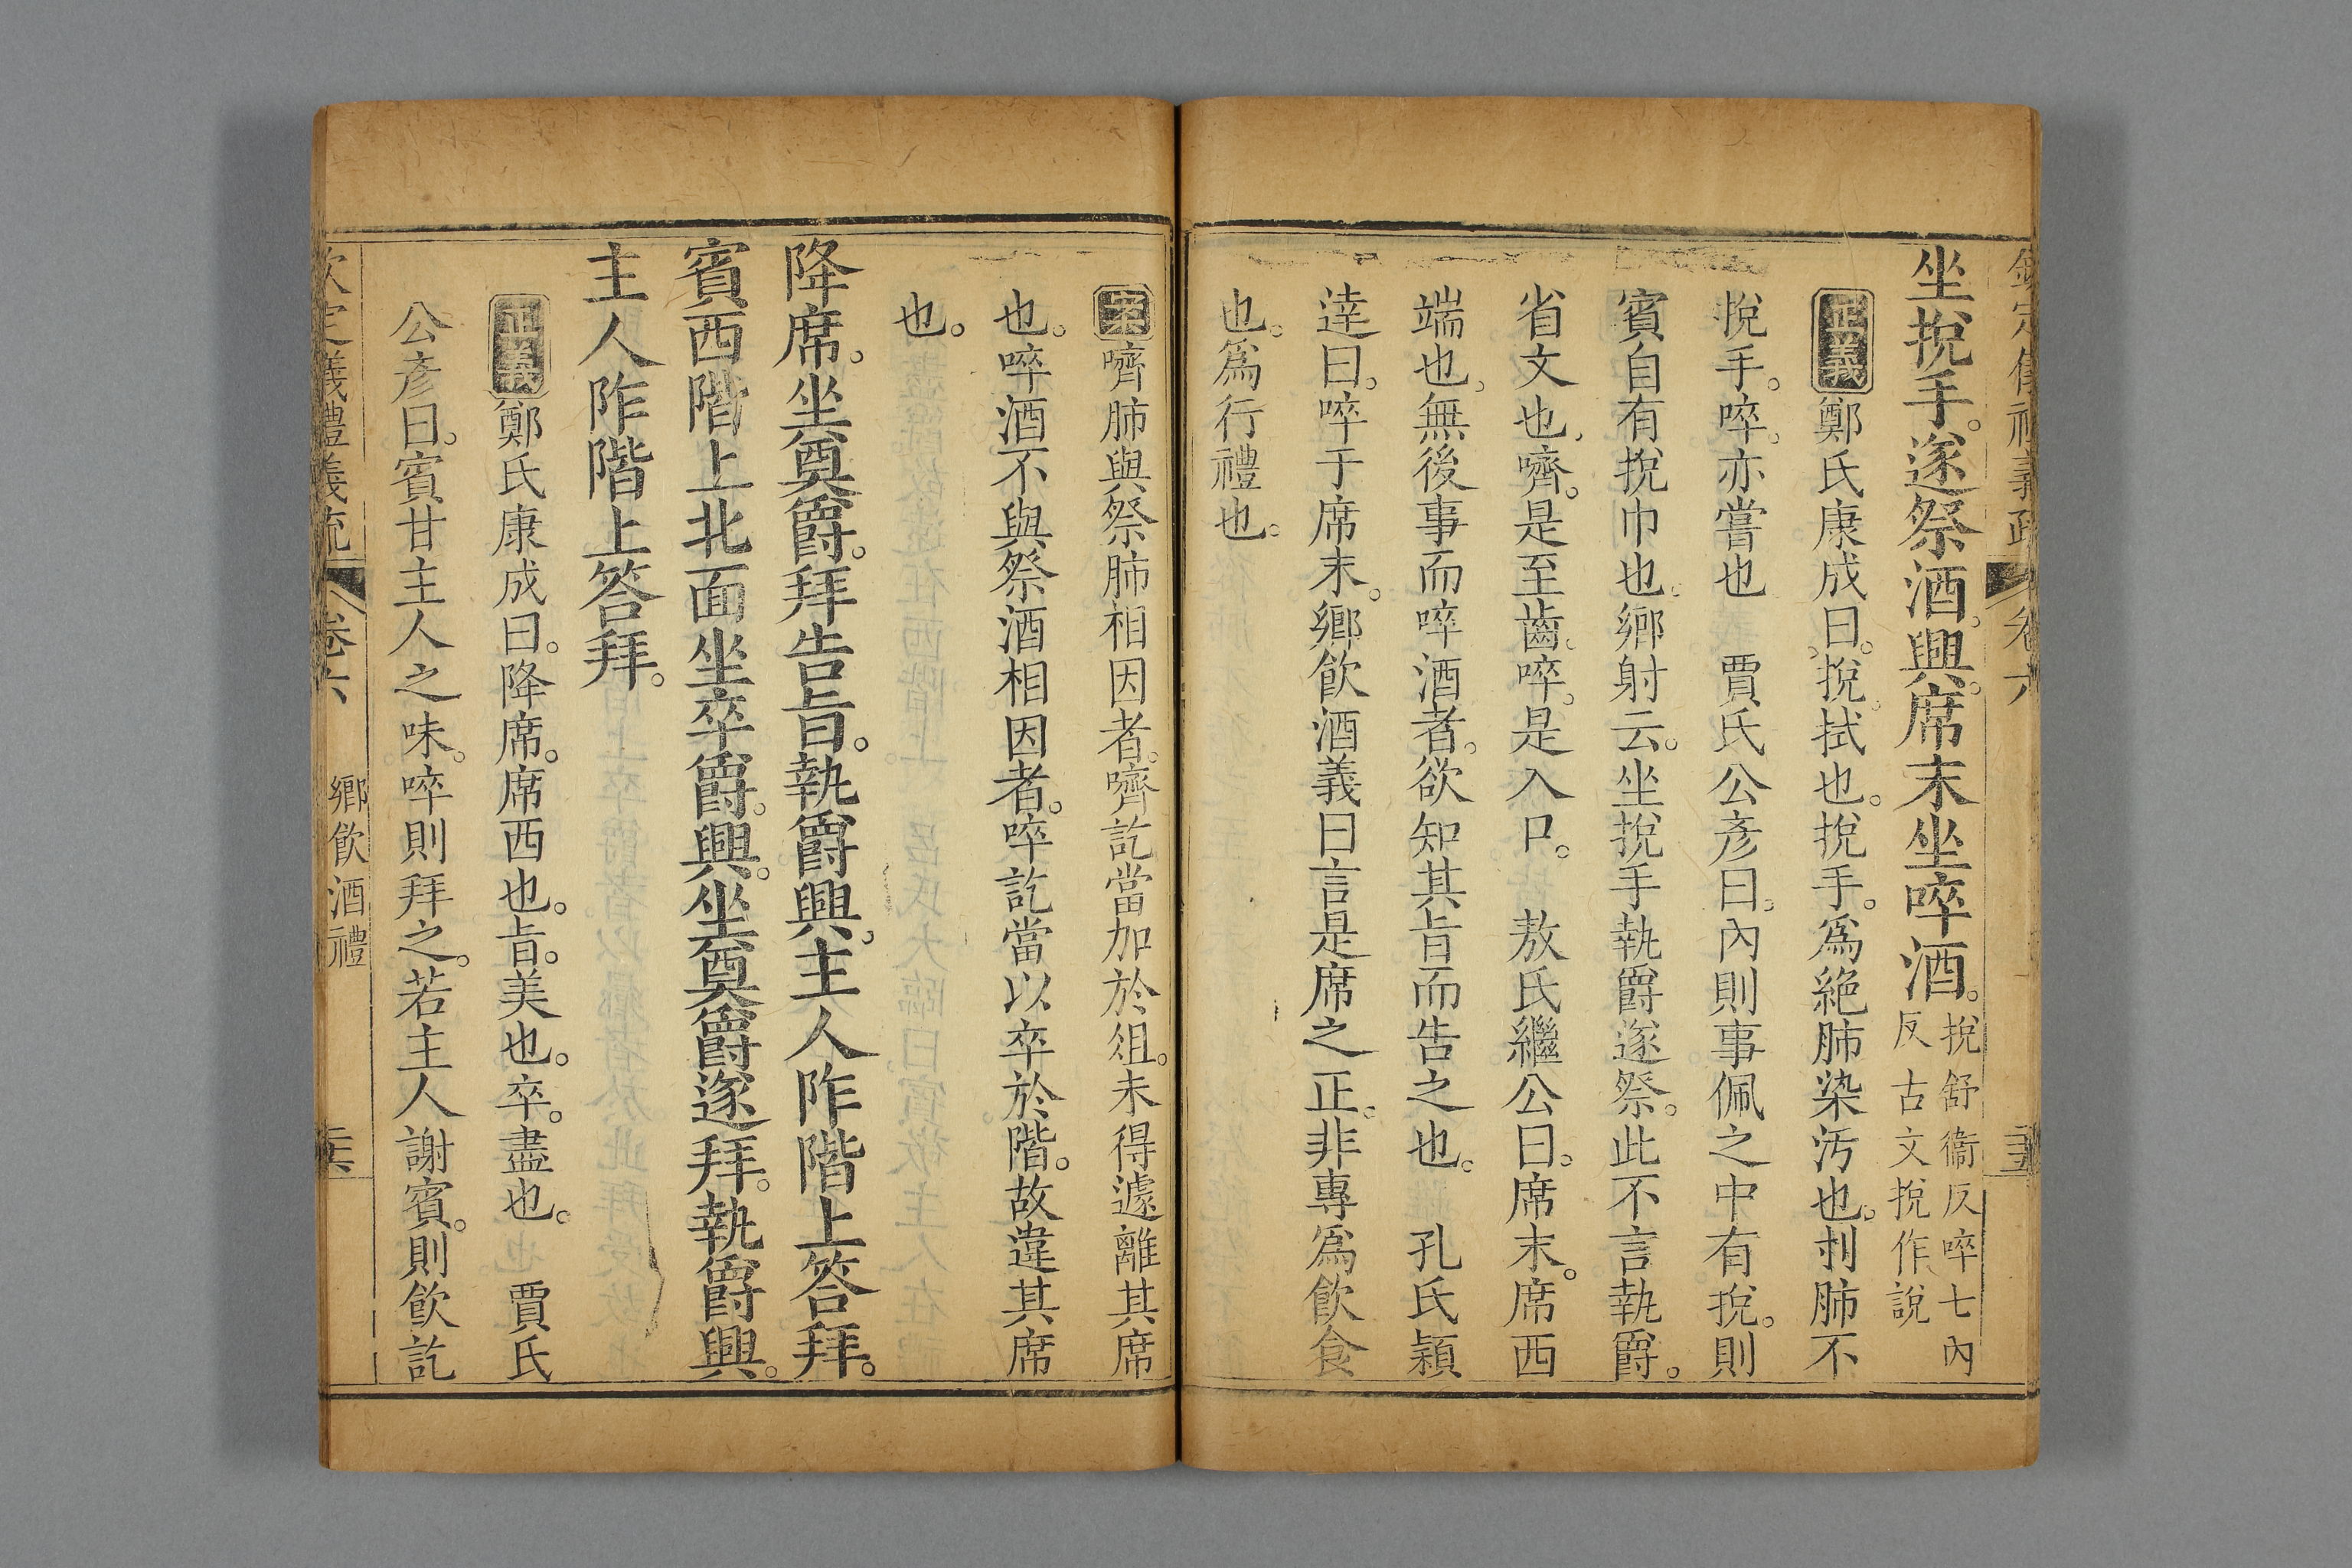 欽定儀禮義疏 卷六
坐挩手。遂祭酒。興。席末坐啐酒。挩舒銳反啐七內
反古文挩作說
正義鄭氏康成曰。挩。拭也。挩手。爲絶肺染汚也。刌肺不
挩手。啐。亦嘗也 賈氏公彥曰。內則事佩之中有挩。則
賓自有挩巾也。鄉射云。坐挩手執爵遂祭。此不言執爵。
省文也。嚌。是至齒。啐。是入口。 敖氏繼公曰。席末。席西
端也。無後事而啐酒者。欲知其旨而告之也。 孔氏穎
達曰。啐于席末。鄉飮酒義曰言是席之正。非專爲飮食
也。爲行禮也。
案嚌肺與祭肺相因者。嚌訖當加於俎。未得遽離其席
也。啐酒不與祭酒相因者。啐訖當以卒於階。故違其席
也。
降席。坐奠爵。拜告旨。執爵興。主人阼階上答拜。
賓西階上北面坐卒爵。興。坐奠爵遂拜。執爵興。
主人阼階上答拜。
正義鄭氏康成曰。降席。席西也。旨。美也。卒。盡也。 賈氏
公彥曰。賓甘主人之味。啐則拜之。若主人謝賓。則飮訖
欽定儀禮義疏 卷六 鄉飮酒禮